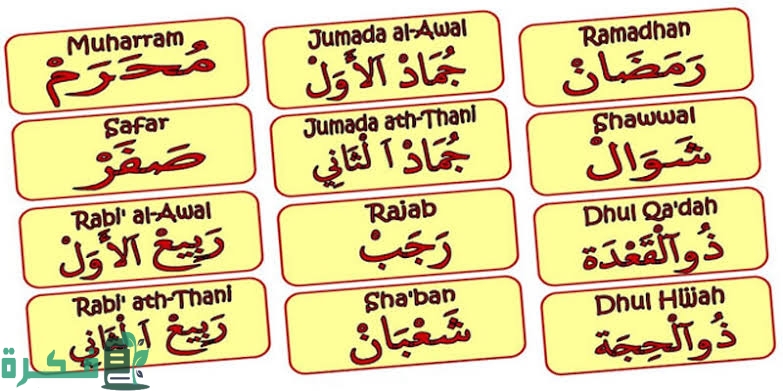 Muharram
مُحَرَمْ
Safar
صَفَرْ
Rabi' al-Awal
رَبِيعْ الأَوَلْ
Rabi' ath-Thani
رَبِيعْ آلْثَانِي
Jumada al-Awal
جُمَادْ الأَوَلْ
Jumada ath-Thani
جُمَادْ آلْثَانِي
Rajab
رَجَبْ
Sha'ban
شَعْبَانْ
Ramadhan
رَمَضَانْ
Shawwal
شَوَالْ
Dhul Qa'dah
ذُوآلْقَعْدَة
Dhul Hijjah
ذُوآلْحِجَة
فكرة